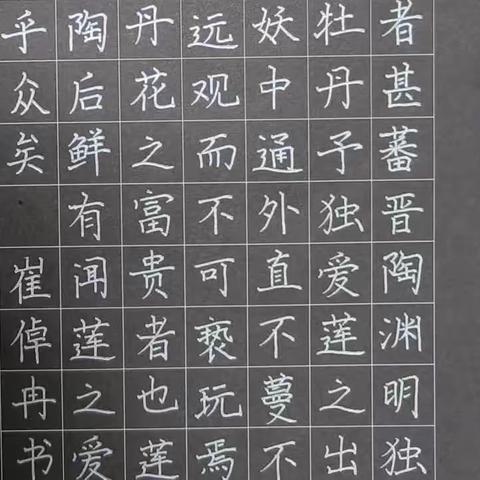 者甚蕃晋陶渊明独
牡丹予独爱莲之出
妖中通外直不蔓不
远观而不可亵玩焉
丹花之富贵者也莲
陶后鲜有闻莲之爱
乎众矣
崔倬冉书